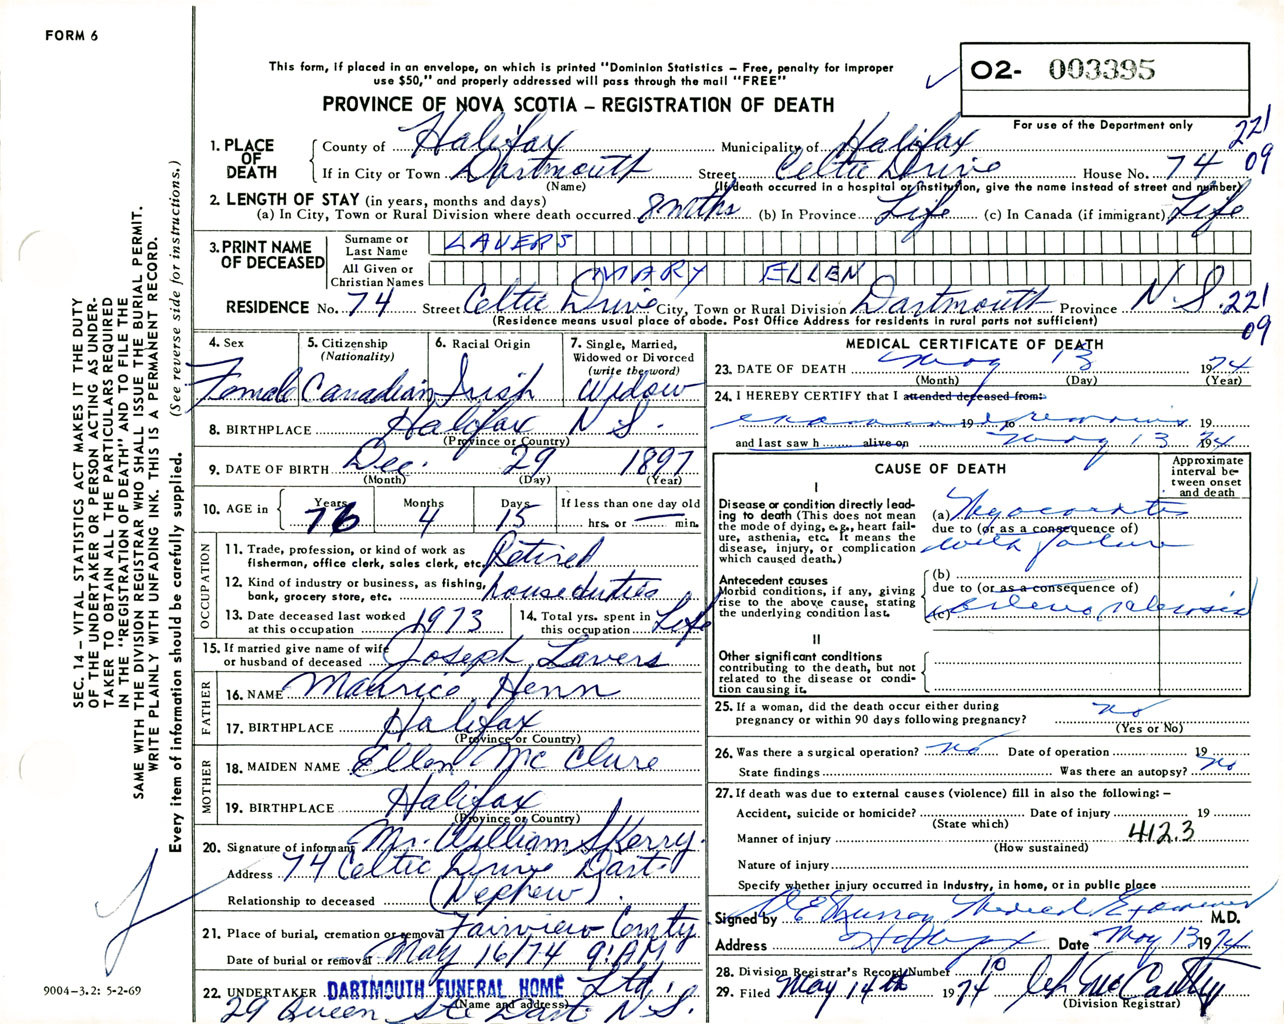 FORM 6
This form, if placed in an envelope, on which is printed "Dominion Statistics – Free, penalty for improper
use $50," and properly addressed will pass through the mail "FREE"
O2- 003395
PROVINCE OF NOVA SCOTIA – REGISTRATION OF DEATH
For use of the Department only
221
09
1. PLACE OF DEATH
County of Halifax Municipality of Halifax
If in City or Town Dartmouth Street Celtic Drive House No. 74
(Name) (If death occurred in a hospital or institution, give the name instead of street and number)
2. LENGTH OF STAY (in years, months and days)
(a) In City, Town or Rural Division where death occurred 8 mths (b) In Province Life (c) In Canada (if immigrant) Life
3. PRINT NAME OF DECEASED
Surname or Last Name LAVERS
All Given or Christian Names MARY ELLEN
RESIDENCE No. 74 Street Celtic Drive City, Town or Rural Division Dartmouth Province N.S.
(Residence means usual place of abode. Post Office Address for residents in rural parts not sufficient)
221
09
4. Sex Female
5. Citizenship (Nationality) Canadian
6. Racial Origin Irish
7. Single, Married, Widowed or Divorced (write the word) Widow
8. BIRTHPLACE Halifax N S.
(Province or Country)
9. DATE OF BIRTH Dec. 29 1897
(Month) (Day) (Year)
10. AGE in Years 76 Months 4 Days 15 If less than one day old hrs. or — min.
OCCUPATION
11. Trade, profession, or kind of work as fisherman, office clerk, sales clerk, etc. Retired
12. Kind of industry or business, as fishing, bank, grocery store, etc. house duties
13. Date deceased last worked at this occupation 1973
14. Total yrs. spent in this occupation Life
15. If married give name of wife or husband of deceased Joseph Lavers
FATHER
16. NAME Maurice Henn
17. BIRTHPLACE Halifax
(Province or Country)
MOTHER
18. MAIDEN NAME Ellen Mc Clure
19. BIRTHPLACE Halifax
(Province or Country)
20. Signature of informant Mr. William Skerry.
Address 74 Celtic Drive Dart
Relationship to deceased (Nephew).
21. Place of burial, cremation or removal Fairview
Date of burial or removal May 16/74 9: A.M
22. UNDERTAKER DARTMOUTH FUNERAL HOME Ltd.
(Name and address)
29 Queen St. Dart N.S.
MEDICAL CERTIFICATE OF DEATH
23. DATE OF DEATH May 13 1974
(Month) (Day) (Year)
24. I HEREBY CERTIFY that I attended deceased from:
examined remains 19 to 19
and last saw h alive on May 13 1974
CAUSE OF DEATH
Approximate interval between onset and death
I
Disease or condition directly leading to death (This does not mean the mode of dying, e.g., heart failure, asthenia, etc. It means the disease, injury, or complication which caused death.)
(a) Myocarditis
due to (or as a consequence of)
with failure
Antecedent causes
Morbid conditions, if any, giving rise to the above cause, stating the underlying condition last.
(b)
due to (or as a consequence of)
(c)
II
Other significant conditions
contributing to the death, but not related to the disease or condition causing it.
25. If a woman, did the death occur either during pregnancy or within 90 days following pregnancy? no
(Yes or No)
26. Was there a surgical operation? no Date of operation 19
State findings Was there an autopsy? no
27. If death was due to external causes (violence) fill in also the following: –
Accident, suicide or homicide? Date of injury 19
(State which)
Manner of injury 412.3
(How sustained)
Nature of injury
Specify whether injury occurred in Industry, in home, or in public place
Signed by Murray Medical Examiner M.D.
Address Halifax Date May 13 1974
28. Division Registrar's Record Number 10
29. Filed May 14th 1974 McCarthy
(Division Registrar)
SEC. 14 – VITAL STATISTICS ACT MAKES IT THE DUTY
OF THE UNDERTAKER OR PERSON ACTING AS UNDER-
TAKER TO OBTAIN ALL THE PARTICULARS REQUIRED
IN THE "REGISTRATION OF DEATH" AND TO FILE THE
SAME WITH THE DIVISION REGISTRAR WHO SHALL ISSUE THE BURIAL PERMIT.
WRITE PLAINLY WITH UNFADING INK. THIS IS A PERMANENT RECORD.
Every item of information should be carefully supplied. (See reverse side for instructions.)
9004–3.2: 5-2-69